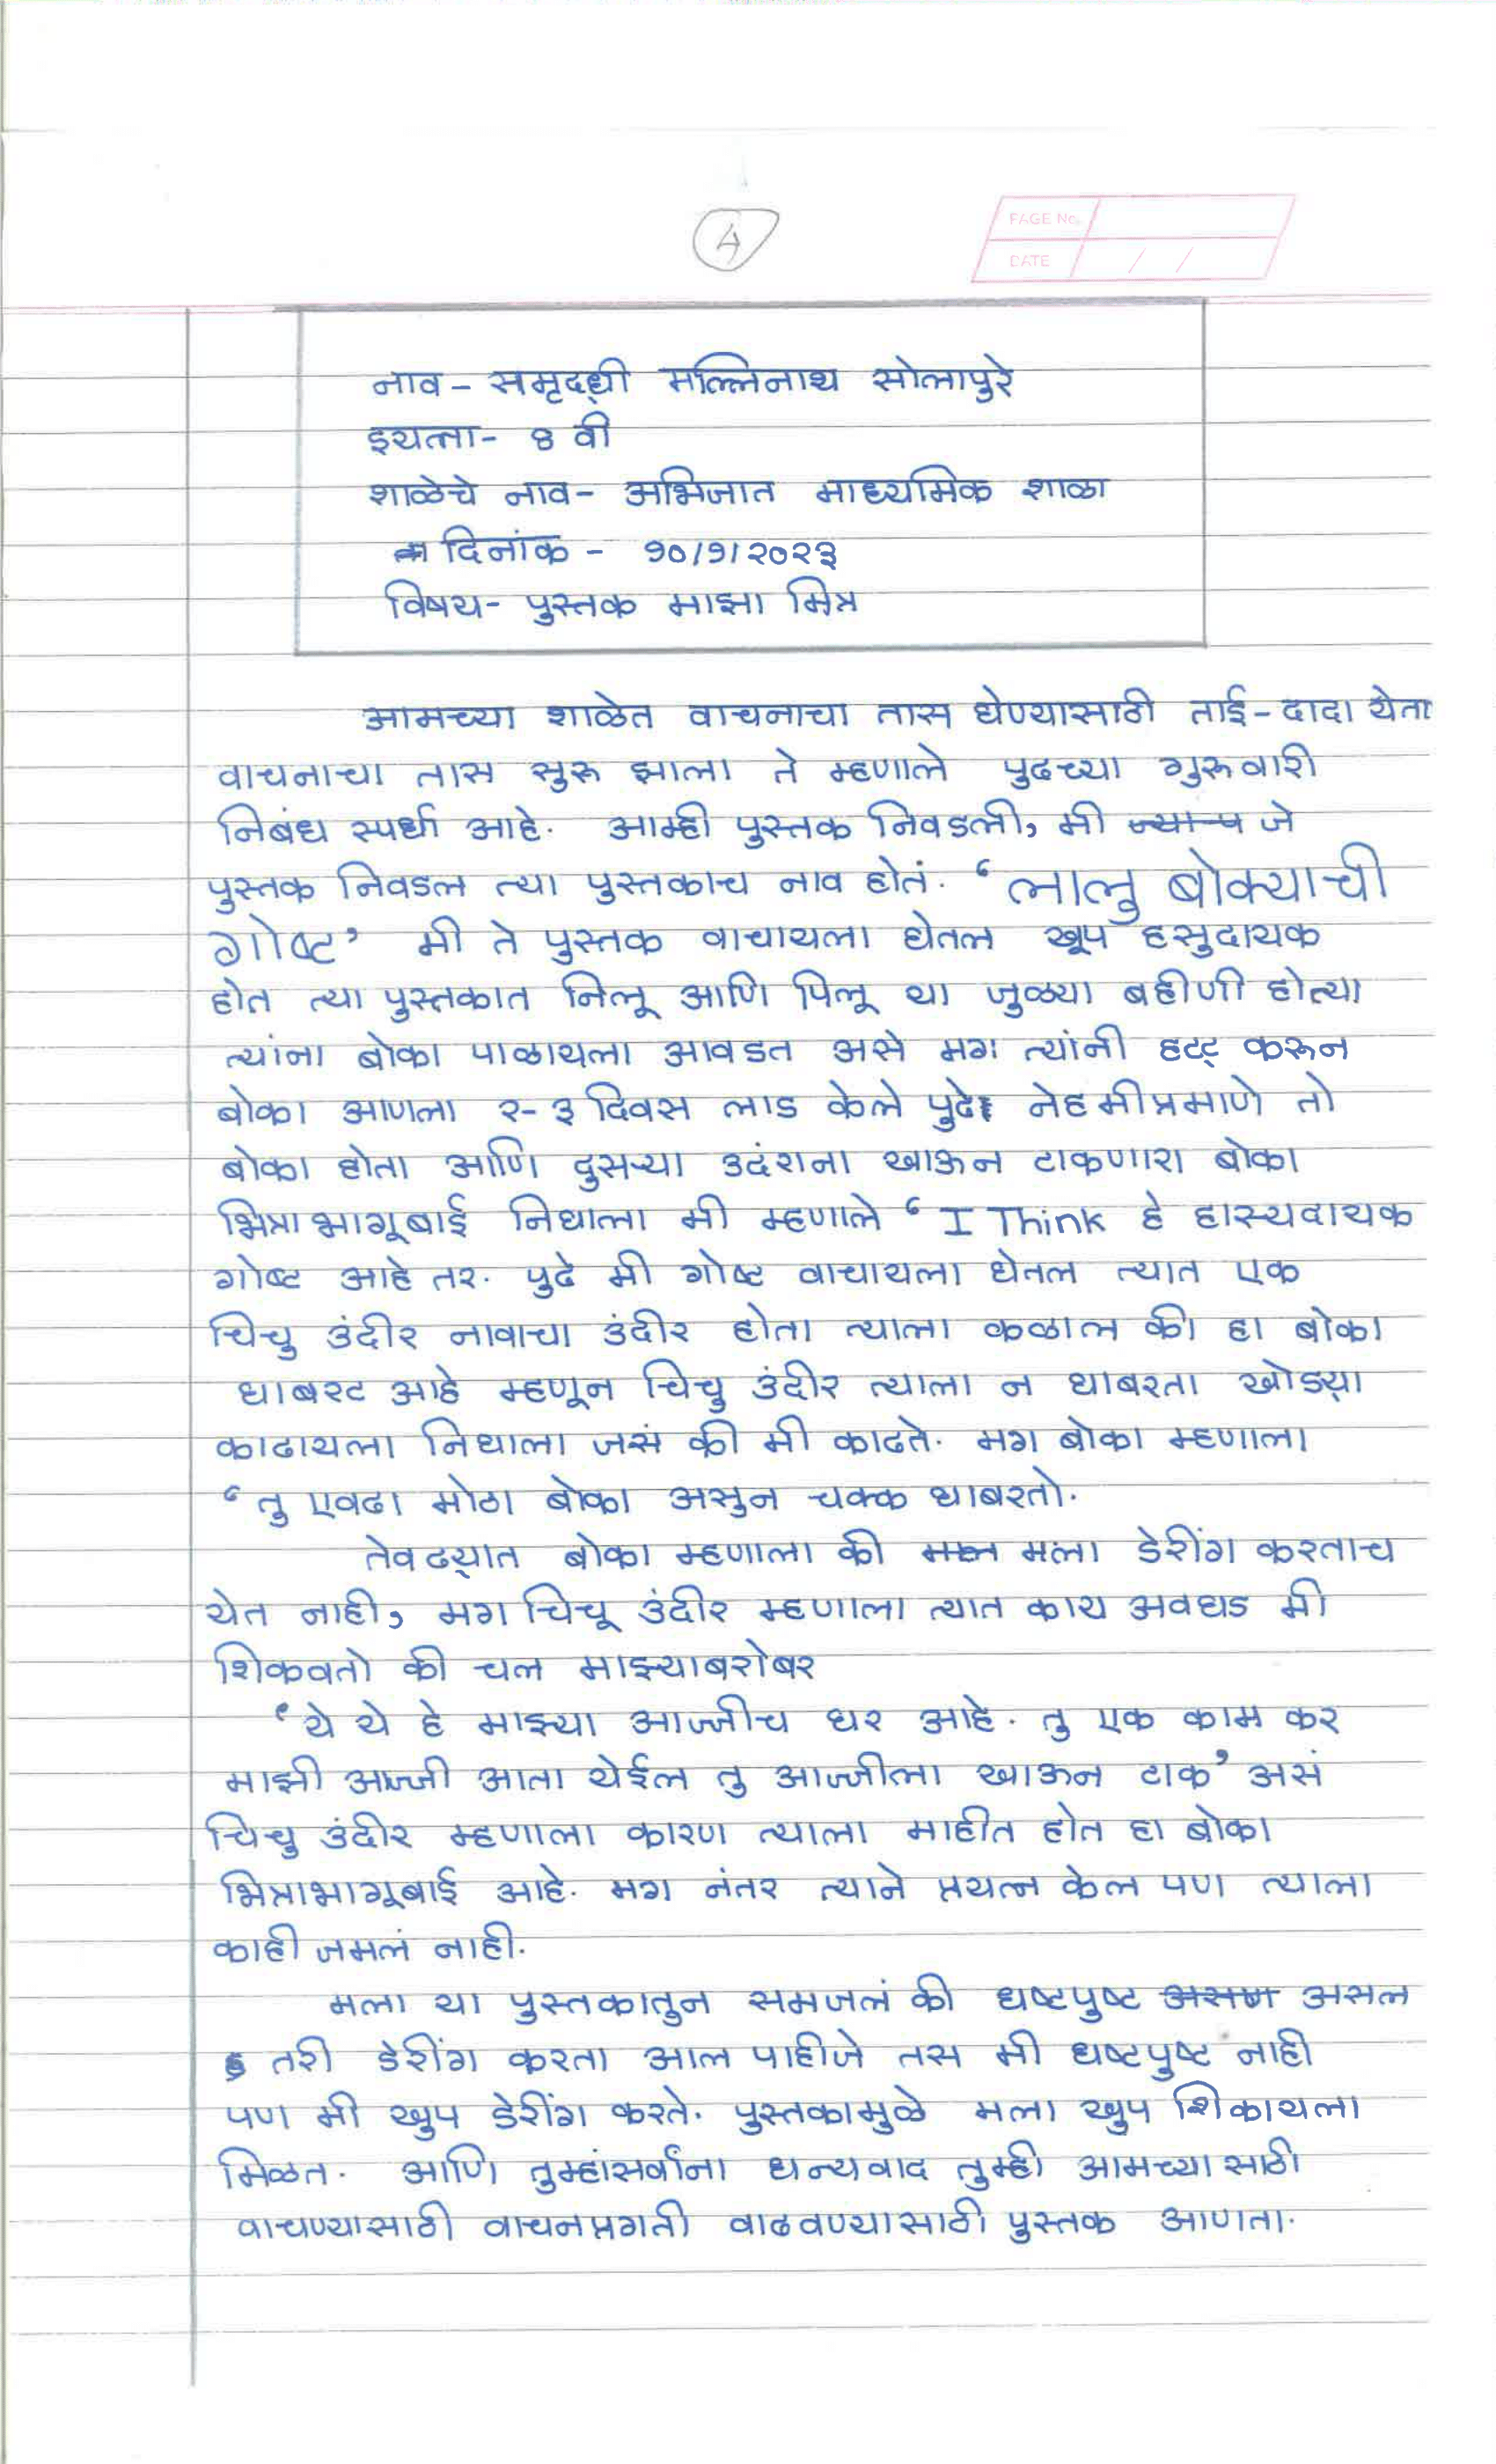 4
PAGE No.
DATE / /
नाव - समृद्धी मल्लिनाथ सोलापुरे
इयत्ता - 8 वी
शाळेचे नाव - अभिजात माध्यमिक शाळा
दिनांक - १०/९/२०२३
विषय - पुस्तक माझा मित्र
आमच्या शाळेत वाचनाचा तास घेण्यासाठी ताई - दादा येता
वाचनाचा तास सुरू झाला ते म्हणाले पुढच्या गुरूवारी
निबंध स्पर्धा आहे. आम्ही पुस्तक निवडली, मी जे
पुस्तक निवडल त्या पुस्तकाच नाव होतं. ‘लालु बोक्याची
गोष्ट’ मी ते पुस्तक वाचायला घेतल खूप हसुदायक
होत त्या पुस्तकात निलू आणि पिलू या जुळ्या बहीणी होत्या
त्यांना बोका पाळायला आवडत असे मग त्यांनी हट्ट करून
बोका आणला २-३ दिवस लाड केले पुढे नेहमीप्रमाणे तो
बोका होता आणि दुसऱ्या उदंराना खाऊन टाकणारा बोका
भित्राभागूबाई निघाला मी म्हणाले ‘I Think हे हास्यदायक
गोष्ट आहे तर. पुढे मी गोष्ट वाचायला घेतल त्यात एक
चिचु उंदीर नावाचा उंदीर होता त्याला कळाल की हा बोका
घाबरट आहे म्हणून चिचु उंदीर त्याला न घाबरता खोड्या
काढायला निघाला जसं की मी काढते. मग बोका म्हणाला
‘तु एवढा मोठा बोका असुन चक्क घाबरतो.
तेवढ्यात बोका म्हणाला की मला डेरींग करताच
येत नाही, मग चिचू उंदीर म्हणाला त्यात काय अवघड मी
शिकवतो की चल माझ्याबरोबर
‘ये ये हे माझ्या आज्जीच घर आहे. तु एक काम कर
माझी आज्जी आता येईल तु आज्जीला खाऊन टाक’ असं
चिचु उंदीर म्हणाला कारण त्याला माहीत होत हा बोका
भित्राभागूबाई आहे. मग नंतर त्याने प्रयत्न केल पण त्याला
काही जमलं नाही.
मला या पुस्तकातुन समजलं की धष्टपुष्ट असल
तरी डेरींग करता आल पाहीजे तस मी धष्टपुष्ट नाही
पण मी खुप डेरींग करते. पुस्तकामुळे मला खुप शिकायला
मिळत. आणि तुम्हांसर्वांना धन्यवाद तुम्ही आमच्यासाठी
वाचण्यासाठी वाचनप्रगती वाढवण्यासाठी पुस्तक आणता.